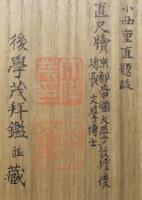 小西重直題跋
直尺牘 京都帝國大學敎授後
總長 文學博士
後學茂拜鑑並藏